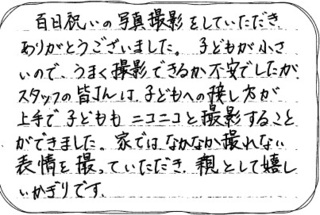 百日祝いの写真撮影をしていただき
ありがとうございました。子どもが小さ
いので、うまく撮影できるか不安でしたが
スタッフの皆さんは、子どもへの接し方が
上手で子どももニコニコと撮影すること
ができました。家ではなかなか撮れない
表情を撮っていただき、親として嬉し
いかぎりです。